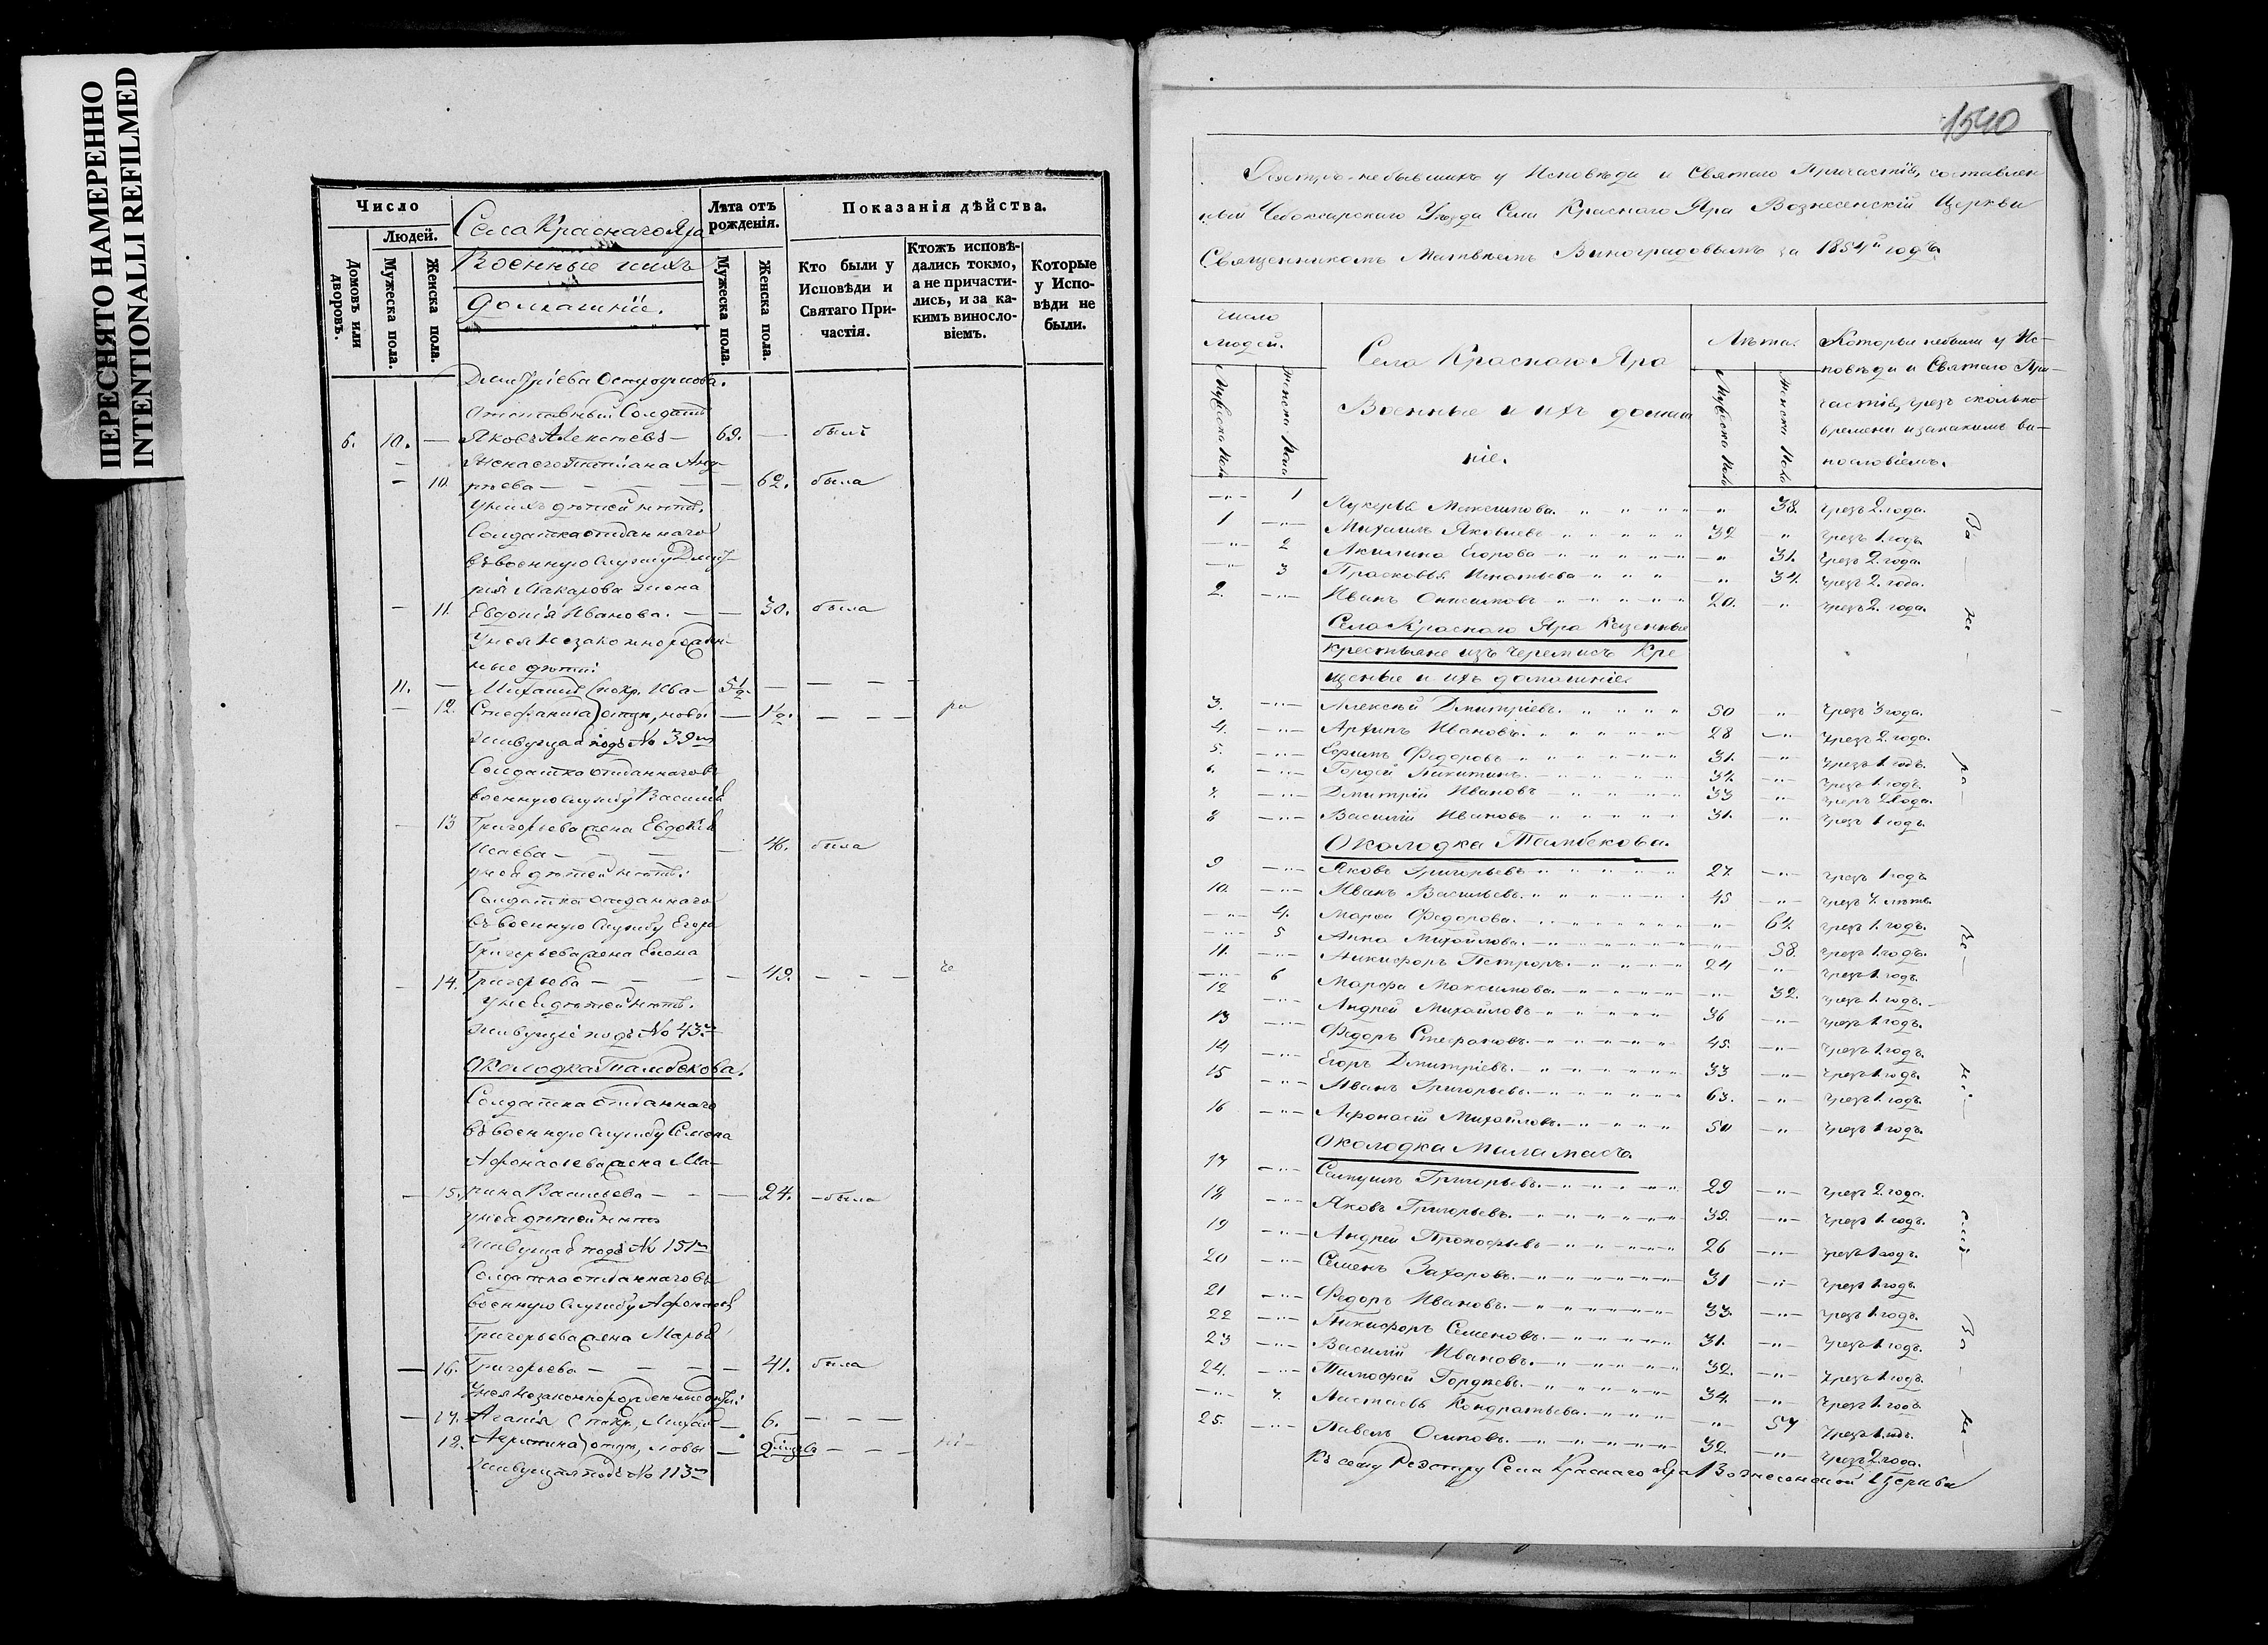 ПЕРЕСНЯТО НАМЕРЕННО
INTENTIONALLI REFILMED
Число
Людей.
Домовъ или дворовъ.
Мужеска пола.
Женска пола.
Села Краснаго Яра
Военные и ихъ
домашніе.
Лѣта отъ рожденія.
Мужеска пола.
Женска пола.
Показанія дѣйства.
Кто были у Исповѣди и Святаго Причастія.
Ктожъ исповѣдались токмо, а не причастились, и за какимъ винословіемъ.
Которые у Исповѣди не были.
Дмитріева
Отставный Солдатъ
6. 10. — Яковъ Алексѣевъ — 69. — былъ
— 10. рѣева — — — 62. была
У нихъ дѣтей нѣтъ.
Солдатка отданнаго
въ военную службу Дмит-
рія Макарова жена
— 11. Евдокія Иванова. — — 30. была
У нея незаконнорожден-
ные дѣти:
11. — Михаилъ 5½ — — —
— 12. Стефанида — 1½. — — —
живущая подъ № 39мъ
Солдатка отданнаго въ
военную службу Василія
— 13 Григорьева жена Евдокія
Исаева — — — 46. была
у ней дѣтей нѣтъ:
Солдатка отданнаго
въ военную службу Егора
Григорьева жена Елена
— 14. Григорьева — — — 49. — — —
У ней дѣтей нѣтъ.
живущіе подъ № 43мъ
Околодка Тамбекова.
Солдатка отданнаго
въ военную службу Семена
Афонасьева жена Ма-
— 15. рина Васильева — — — 24. — была
у ней дѣтей нѣтъ
живущая подъ № 151мъ
Солдатка отданнаго въ
военную службу Афонасія
Григорьева жена Марья
— 16. Григорьева — — — 41. была
У нея незаконнорожденные дѣти:
— 17. Агапія — 6. — — —
18. — — — —
живущая подъ № 113мъ
1540
Реэстръ небывшихъ у Исповѣди и Святаго Причастія, составлен
ный Чебоксарскаго Уѣзда Села Краснаго Яра Вознесенскій Церкви
Священникомъ Матвѣемъ Виноградовымъ за 1854й годъ.
Число людей.
Мужеска пола
Женска пола
Села Краснаго Яра
Военные и ихъ домаш
ніе.
Лѣта.
Мужеска пола
Женска пола
Которые небыли у Ис-
повѣди и Святаго При-
частія, чрезъ сколько
времени и за какимъ ви-
нословіемъ.
1 Лукерья Максимова. 38. чрезъ 2. года.
1 Михаилъ Яковлевъ 32 чрезъ 1. годъ
2 Акилина Егорова 31. чрезъ 2. года.
3 Прасковья Игнатьева 34. чрезъ 2. года.
2. Иванъ Онисимовъ 20. чрезъ 2. года.
Села Краснаго Яра Казенные
крестьяне изъ черемисъ Кре
щеные и ихъ домашніе.
3. Алексѣй Дмитріевъ. 50 чрезъ 3 года.
4. Архипъ Ивановъ. 28 чрезъ 2. года.
5. Ефимъ Федоровъ 31. чрезъ 1. годъ.
6. Гордей Никитинъ. 34. чрезъ 1. годъ.
7. Дмитрій Ивановъ 33 чрезъ 2 года.
8 Василій Ивановъ 31. чрезъ 1 годъ.
Околодка Тамбекова.
9 Яковъ Григорьевъ 27. чрезъ 1 годъ
10. Иванъ Васильевъ. 45 чрезъ 7. лѣтъ.
4. Марѳа Федорова. 64. чрезъ 1. годъ.
5 Анна Михайлова. 58. чрезъ 1. годъ.
11. Никифоръ Петровъ. 24 чрезъ 1. годъ.
6 Марфа Максимова. 32. чрезъ 1. годъ.
12 Андрей Михайловъ 36 чрезъ 1. годъ.
13 Федоръ Стефановъ. 45. чрезъ 1. годъ.
14 Егоръ Дмитріевъ. 33 чрезъ 1. годъ.
15 Иванъ Григорьевъ. 63. чрезъ 1. годъ.
16 Афонасій Михайловъ. 50 чрезъ 1. годъ.
Околодка Миламасъ.
17 Григорьевъ. 29 чрезъ 2. года.
18 Яковъ Григорьевъ. 39. чрезъ 1. годъ.
19 Андрей Прокофьевъ 26 чрезъ 1 годъ.
20 Семенъ Захаровъ. 31 чрезъ 1. годъ.
21 Федоръ Ивановъ. 33. чрезъ 1. годъ.
22 Никифоръ Семеновъ. 31. чрезъ 1. годъ.
23 Василій Ивановъ. 32. чрезъ 1. годъ.
24. Тимофей Гордѣевъ. 34. чрезъ 1. годъ.
7. Настасья Кондратьева. 57 чрезъ 1. годъ.
25. Павелъ Осиповъ. 32. чрезъ 2. года.
Къ сему Реэстру Села Краснаго Яра Вознесенской Церкви